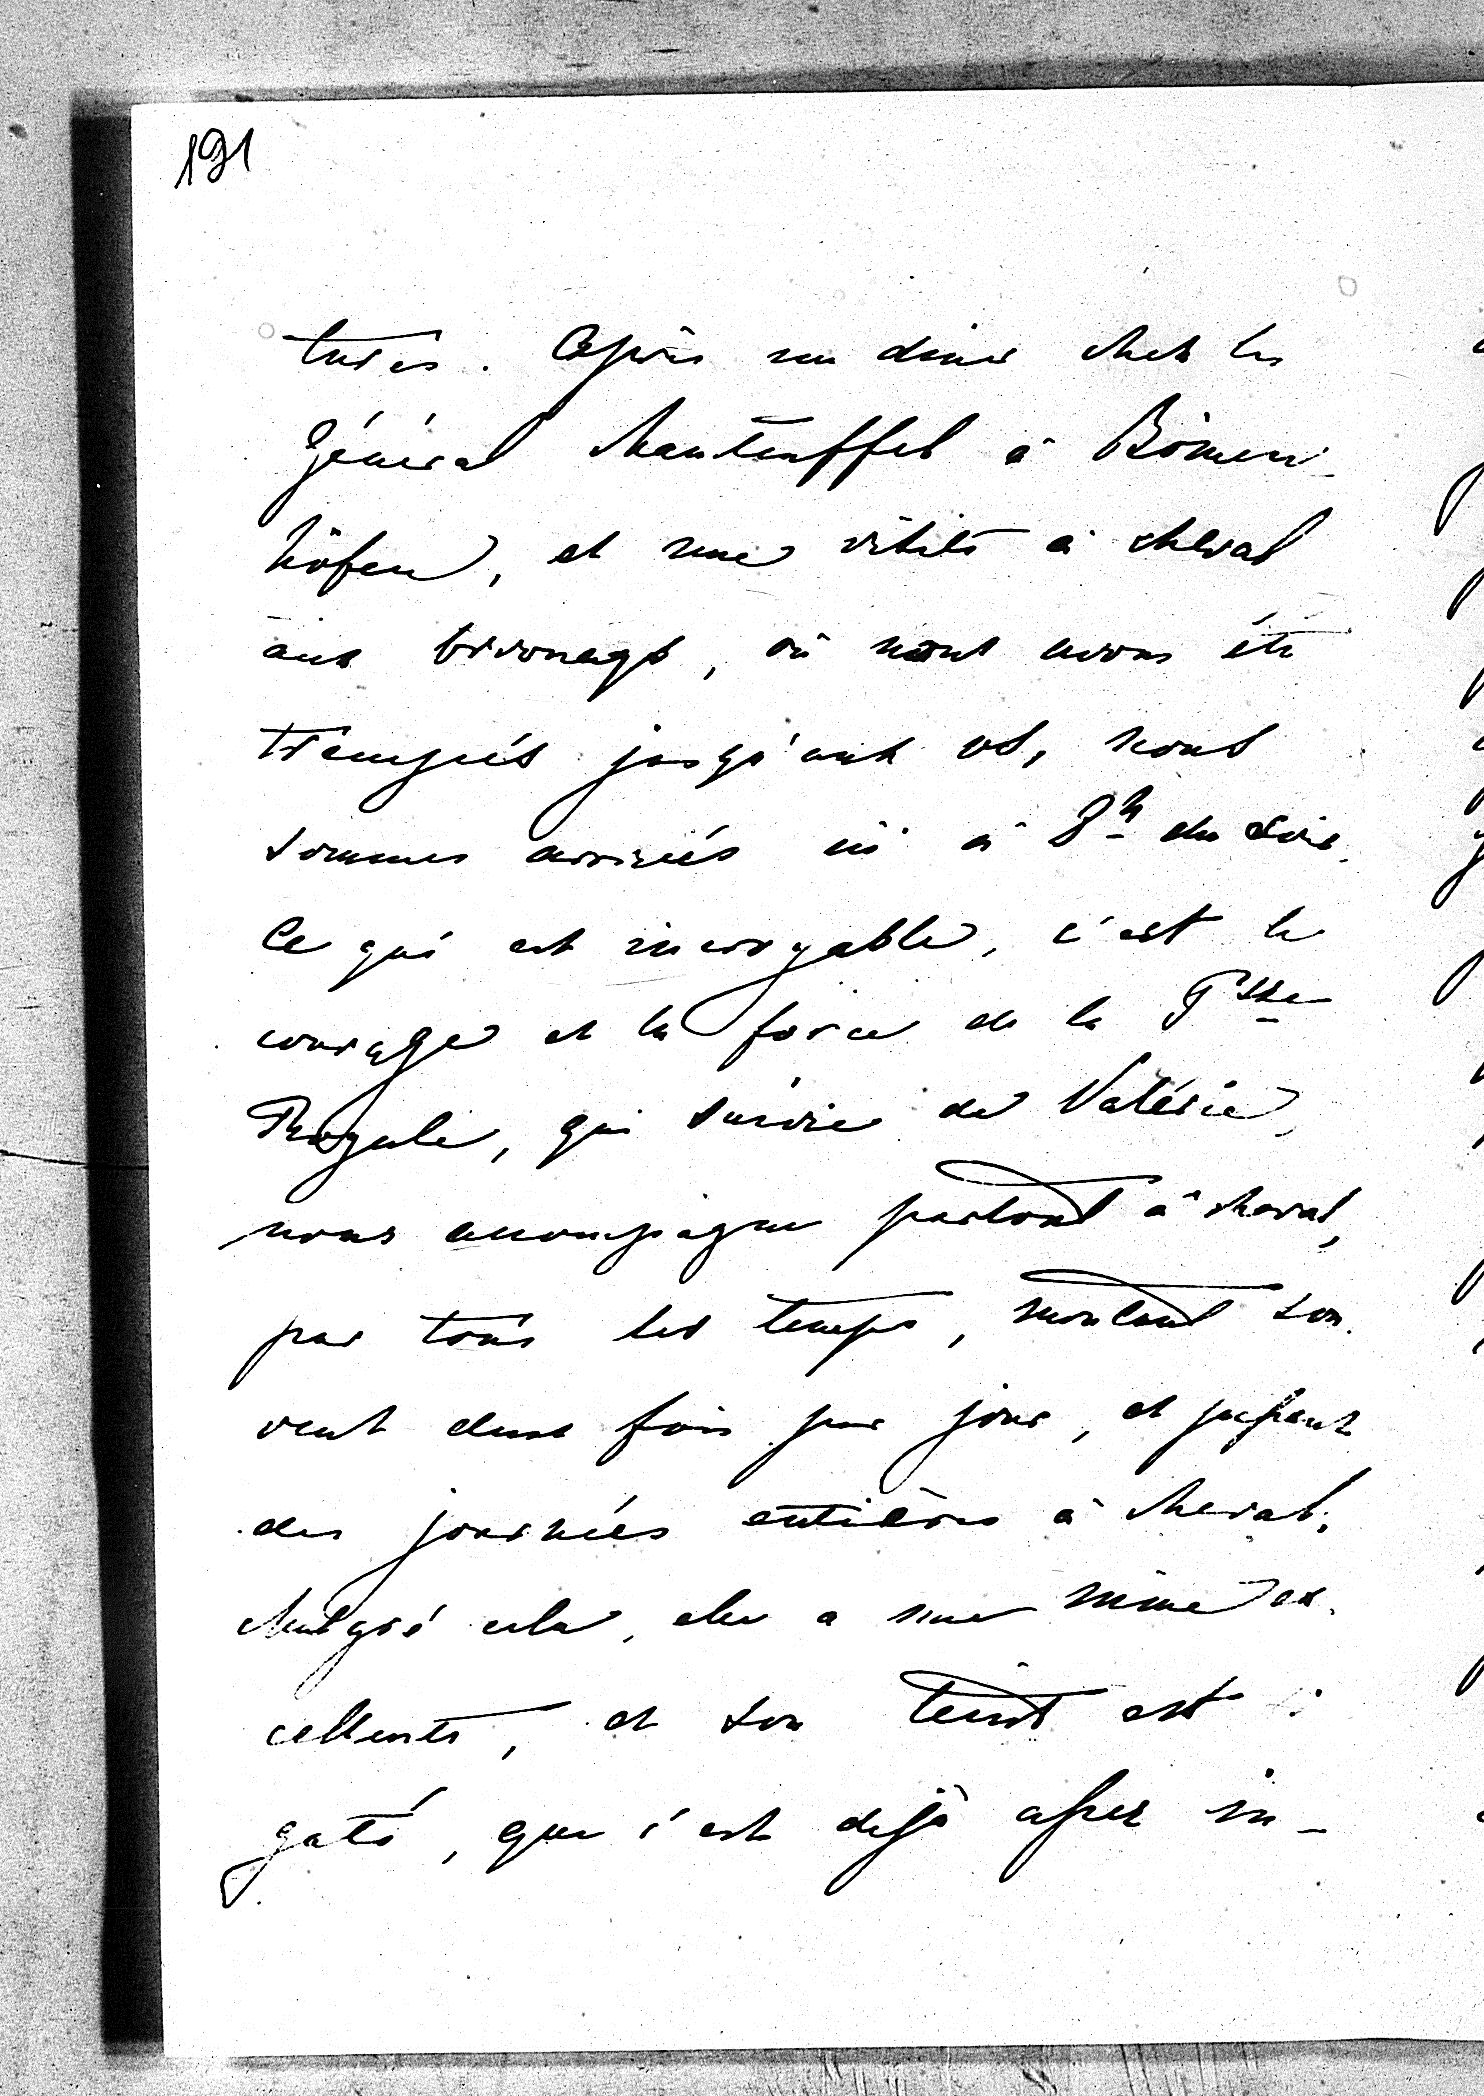 191
tures. Après un diner chez les
Général Manteuffel à Römer-
höfen, et une visite à cheval
aux bivouaqs, où nous avons été
trempés jusqu'aux os, nous
sommes arrivés ici à 8h du soir.
Ce qui est incroyable, c'est le
courage et la force de la Psse
Royale, qui suivie de Valérie,
nous accompagne partout à cheval,
par tous les temps, montant sou-
vent deux fois par jour, et passant
des journées entières à cheval.
Malgré cela, elle a une mine ex-
cellente, et son teint est si
gaté, que c'est dejà assez in-